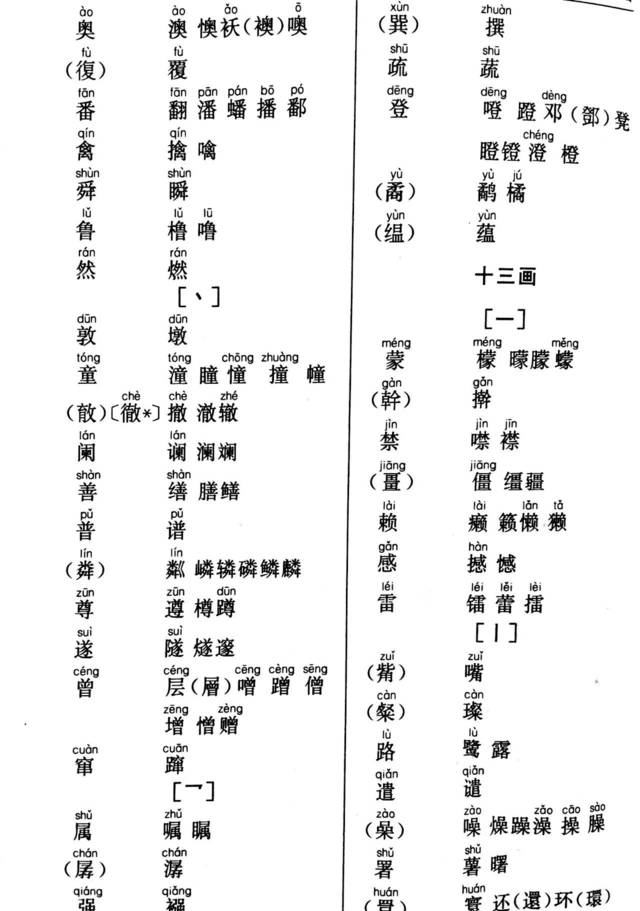 ào ào ǎo ō
奥 澳 懊 袄(襖)噢
fù fù
(復) 覆
fān fān pān pán bō pó
番 翻 潘 蟠 播 鄱
qín qín
禽 擒 噙
shùn shùn
舜 瞬
lǔ lǔ lū
鲁 橹 噜
rán rán
然 燃
[丶]
dūn dūn
敦 墩
tóng tóng chōng zhuàng
童 潼 瞳 憧 撞 幢
chè chè zhé
(㪿)〔徹*〕撤 澈 辙
lán lán
阑 谰 澜 斓
shàn shàn
善 缮 膳 鳝
pǔ pǔ
普 谱
lín lín
(粦) 粼 嶙 辚 磷 鳞 麟
zūn zūn dūn
尊 遵 樽 蹲
suì suì
遂 隧 燧 邃
céng céng cēng cèng sēng
曾 层(層)噌 蹭 僧
zēng zèng
增 憎 赠
cuàn cuān
窜 蹿
[乛]
shǔ zhǔ
属 嘱 瞩
chán chán
(孱) 潺
qiáng qiǎng
强 襁
xùn zhuàn
(巽) 撰
shū shū
疏 蔬
dēng dēng dèng
登 噔 蹬 邓(鄧)凳
chéng
瞪 镫 澄 橙
yù yù jú
(矞) 鹬 橘
yùn yùn
(缊) 蕴
十三画
[一]
méng méng měng
蒙 檬 曚 朦 蠓
gàn gǎn
(幹) 擀
jìn jìn jīn
禁 噤 襟
jiāng jiāng
(畺) 僵 缰 疆
lài lài lǎn tǎ
赖 癞 籁 懒 獭
gǎn hàn
感 撼 憾
léi léi lěi lèi
雷 镭 蕾 擂
[丨]
zuǐ zuǐ
(觜) 嘴
càn càn
(粲) 璨
lù lù
路 鹭 露
qiǎn qiǎn
遣 谴
zào zào zǎo cāo sào
(喿) 噪 燥 躁 澡 操 臊
shǔ shǔ
署 薯 曙
huán huán
(睘) 寰 还(還)环(環)